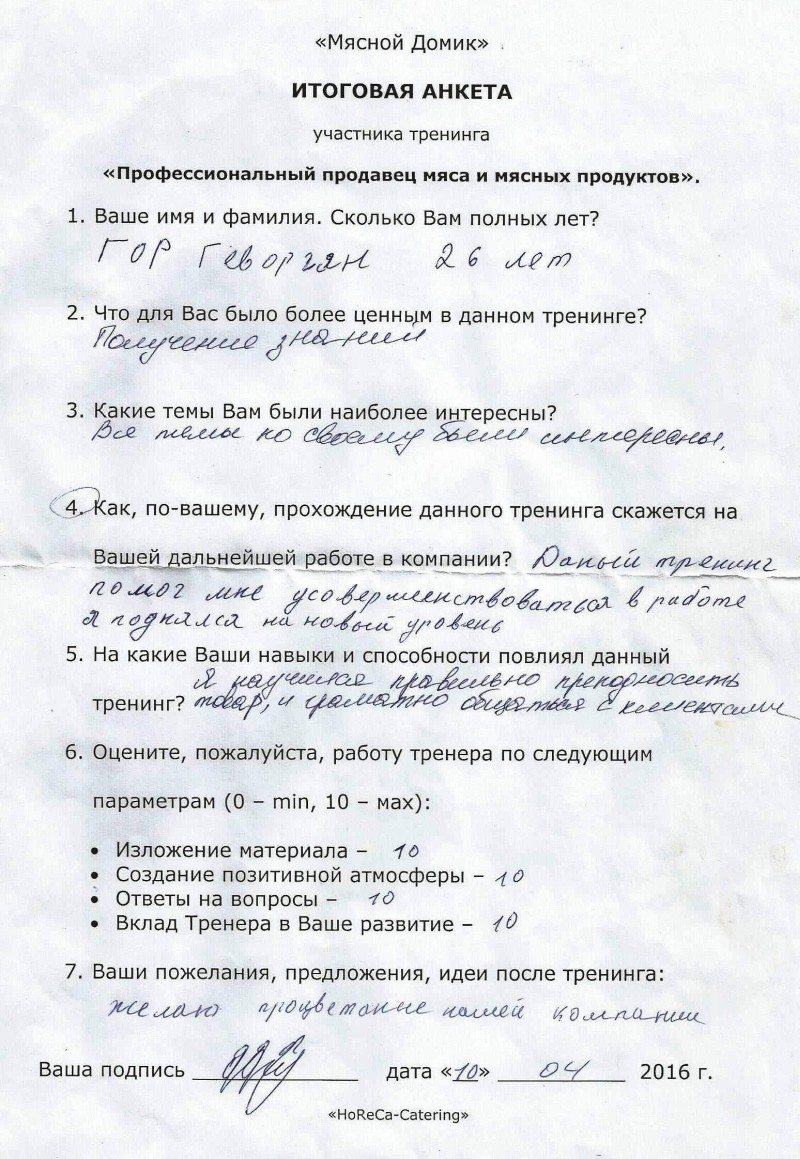 «Мясной Домик»
ИТОГОВАЯ АНКЕТА
участника тренинга
«Профессиональный продавец мяса и мясных продуктов».
1. Ваше имя и фамилия. Сколько Вам полных лет?
ГОР Геворгян 26 лет
2. Что для Вас было более ценным в данном тренинге?
Получение знаний
3. Какие темы Вам были наиболее интересны?
Все темы по своему были интересны.
4. Как, по-вашему, прохождение данного тренинга скажется на
Вашей дальнейшей работе в компании? Даный тренинг
помог мне усовершенствоваться в работе
я поднялся на новый уровень
5. На какие Ваши навыки и способности повлиял данный
Я научился правильно преподносить
тренинг? товар, и граматно общаться с клиентами
6. Оцените, пожалуйста, работу тренера по следующим
параметрам (0 – min, 10 – мах):
• Изложение материала – 10
• Создание позитивной атмосферы – 10
• Ответы на вопросы – 10
• Вклад Тренера в Ваше развитие – 10
7. Ваши пожелания, предложения, идеи после тренинга:
желаю процветание нашей компании
Ваша подпись ____________ дата «10» 04 2016 г.
«HoReCa-Catering»